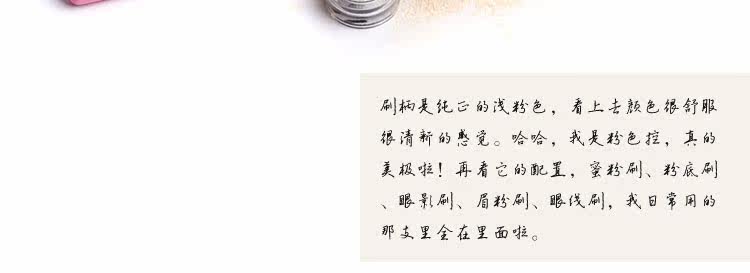 刷柄是纯正的浅粉色，看上去颜色很舒服
很清新的感觉。哈哈，我是粉色控，真的
美极啦！再看它的配置，蜜粉刷、粉底刷
、眼影刷、眉粉刷、眼线刷，我日常用的
那支里会在里面啦。